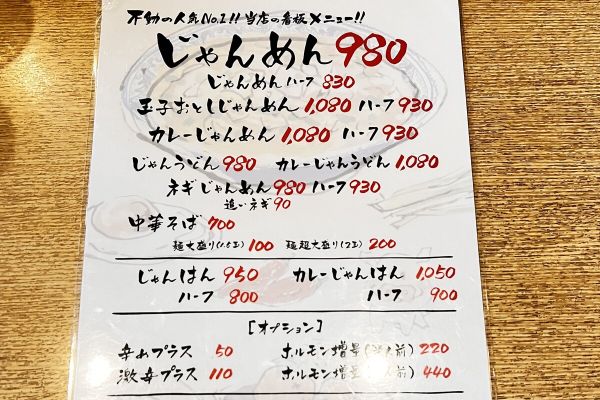 不動の人気No.1!! 当店の看板メニュー!!
じゃんめん 980
じゃんめん ハーフ 830
玉子おとしじゃんめん 1,080 ハーフ 930
カレーじゃんめん 1,080 ハーフ 930
じゃんうどん 980 カレーじゃんうどん 1,080
ネギじゃんめん 980 ハーフ 930
追いネギ 90
中華そば 700
麺大盛り(1.5玉) 100 麺超大盛り(2玉) 200
じゃんはん 950 カレーじゃんはん 1,050
ハーフ 800 ハーフ 900
[オプション]
辛めプラス 50 ホルモン増量( 人前) 220
激辛プラス 110 ホルモン増量( 人前) 440